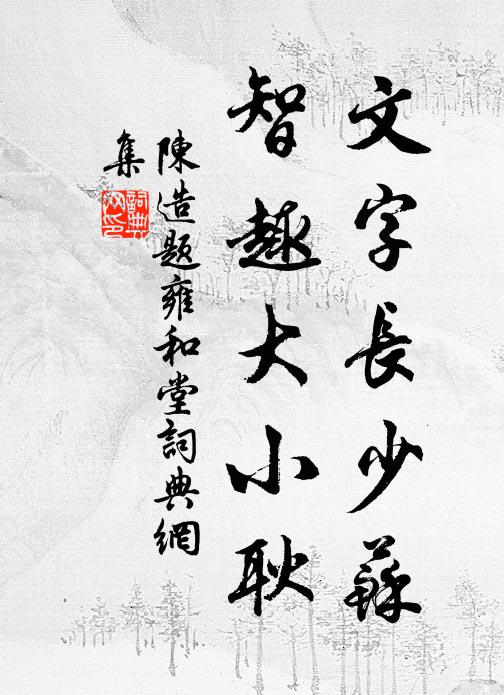 文字長少蘇
智趣大小耿
陳造題雍和堂詞典網
集
詞典
网印